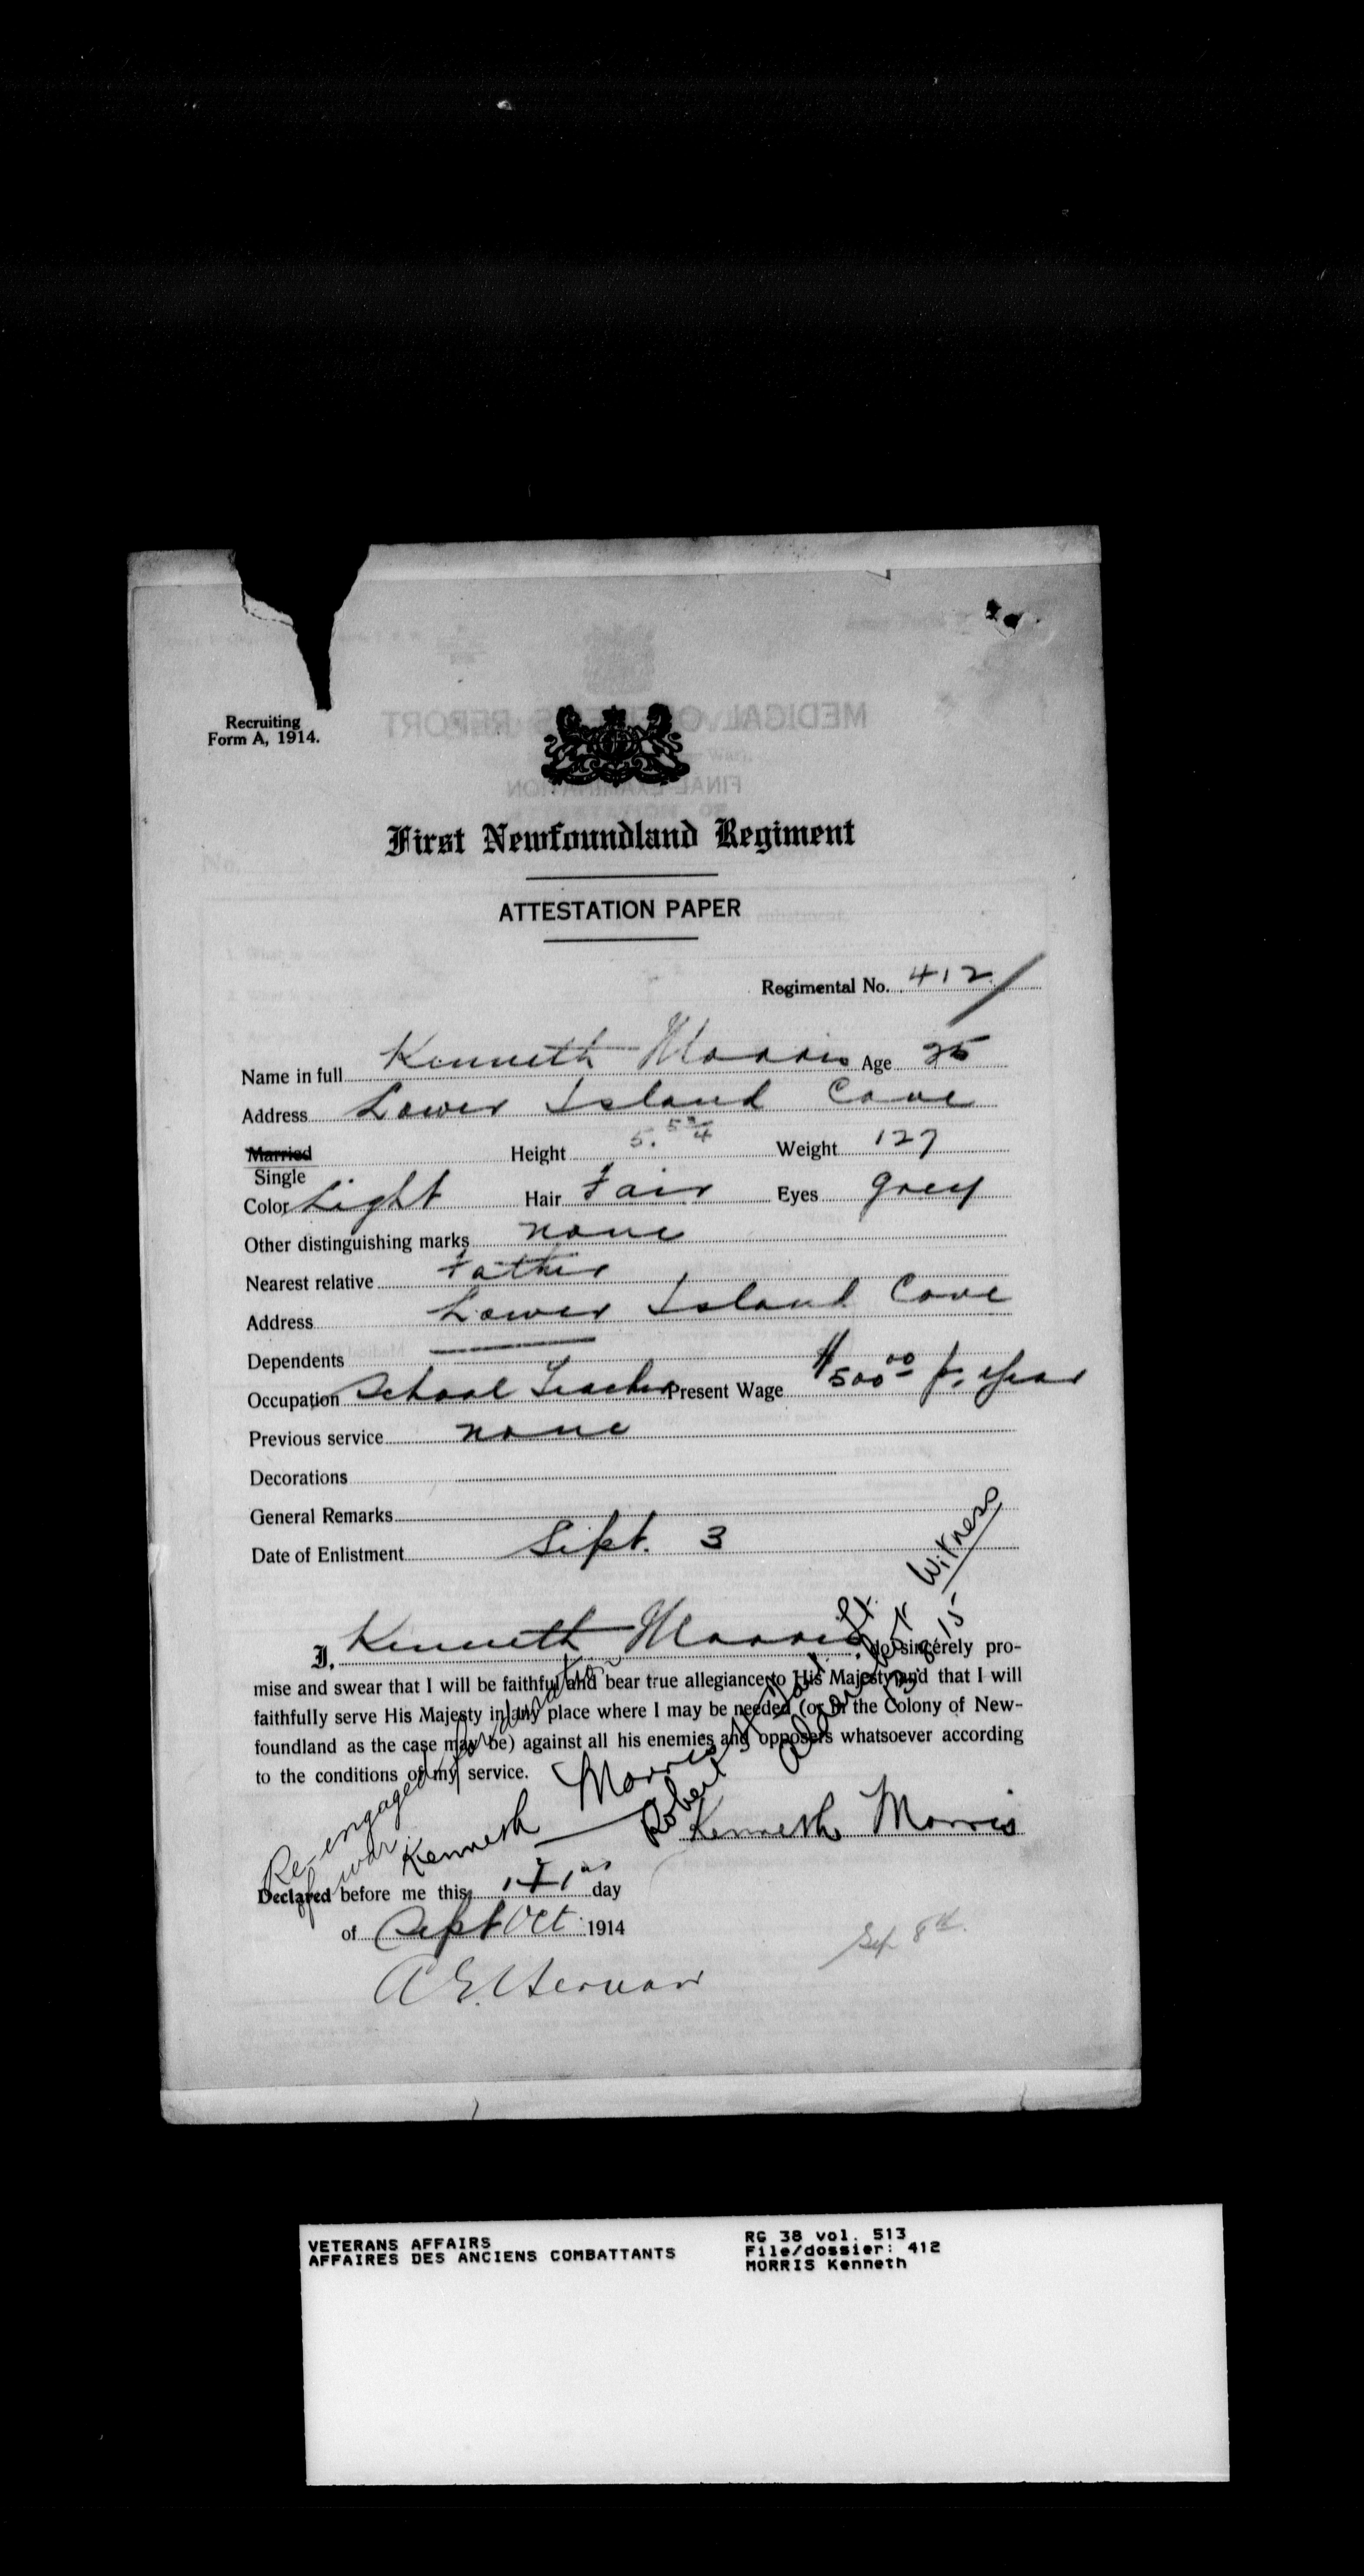 Recruiting
Form A, 1914.
First Newfoundland Regiment
ATTESTATION PAPER
Regimental No. 412
Name in full Kenneth Morris Age 25
Address Lower Island Cove
Married
Single Height 5. 5 3/4 Weight 127
Color Light Hair Fair Eyes grey
Other distinguishing marks none
Nearest relative Father
Address Lower Island Cove
Dependents
Occupation School Teacher Present Wage $500.00 p. year
Previous service none
Decorations
General Remarks
Date of Enlistment Sept. 3
I, Kenneth Morris do sincerely pro-
mise and swear that I will be faithful and bear true allegiance to His Majesty and that I will
faithfully serve His Majesty in any place where I may be needed (or in the Colony of New-
foundland as the case may be) against all his enemies and opposers whatsoever according
to the conditions of my service.
Re-engaged for duration
of war.
Kenneth Morris
Robert
Witness
Kenneth Morris
Declared before me this 1st day
of Sept Oct 1914
Sep 8th.
VETERANS AFFAIRS
AFFAIRES DES ANCIENS COMBATTANTS
RG 38 vol. 513
File/dossier: 412
MORRIS Kenneth